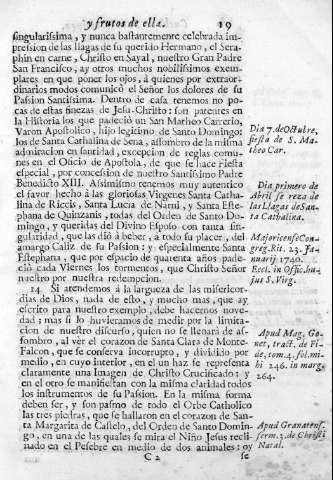 y frutos de ella. 19
singularissima, y nunca bastantemente celebrada im-
pression de las llagas de su querido Hermano, el Sera-
phin en carne, Christo en Sayal, nuestro Gran Padre
San Francisco, ay otros muchos nobilissimos exem-
plares en que poner los ojos, à quienes por extraor-
dinarios modos comunicò el Señor los dolores de su
Passion Santissima. Dentro de casa tenemos no po-
cas de estas finezas de Jesu-Christo: son patentes en
la Historia los que padeciò un San Matheo Carrerio,
Varon Apostolico, hijo legitimo de Santo Domingo;
los de Santa Cathalina de Sena, assombro de la misma
admiracion en santidad, excepcion de reglas comu-
nes en el Oficio de Apostola, de que se hace Fiesta
especial, por concession de nuestro Santissimo Padre
Benedicto XIII. Assimismo tenemos muy autentico
el favor hecho à las gloriosas Virgenes Santa Catha-
lina de Riccis, Santa Lucia de Narni, y Santa Este-
phana de Quinzanis, todas del Orden de Santo Do-
mingo, y queridas del Divino Esposo con tanta sin-
gularidad, que las diò à beber, à todo su placer, del
amargo Caliz de su Passion; y especialmente Santa
Estephana, que por espacio de quarenta años pade-
ciò cada Viernes los tormentos, que Christo Señor
nuestro por nuestra redempcion.
14. Si atendemos à la largueza de las misericor-
dias de Dios, nada de esto, y mucho mas, que ay
escrito para nuestro exemplo, debe hacernos nove-
dad; mas si lo huviessemos de medir por la limita-
cion de nuestro discurso, quien no se llenarà de as-
sombro, al vèr el corazon de Santa Clara de Monte-
Falcon, que se conserva incorrupto, y dividido por
medio, en cuyo interior, en el un haz se representa
claramente una Imagen de Christo Crucificado; y
en el otro se manifiestan con la misma claridad todos
los instrumentos de su Passion. En la misma forma
deben ser, y son pasmo de todo el Orbe Catholico
las tres piedras, que se hallaron en el corazon de San-
ta Margarita de Castelo, del Orden de Santo Domin-
go, en una de las quales se mira el Niño Jesus recli-
nado en el Pesebre en medio de dos animales; en
C 2 se
Dia 7. de Octubre,
fiesta de S. Ma-
theo Car.
Dia primero de
Abril se reza de
las Llagas de San-
ta Cathalina.
Majoricense Con-
greg. Rit. 23. Ja-
nuarij 1740.
Eccl. in Offic. hu-
jus S. Virg.
Apud Mag. Go-
net, tract. de Fi-
de, tom. 4. fol. mi-
hi 246. in marg.
264.
Apud Granatens.
serm. 3. de Christi
Natal.